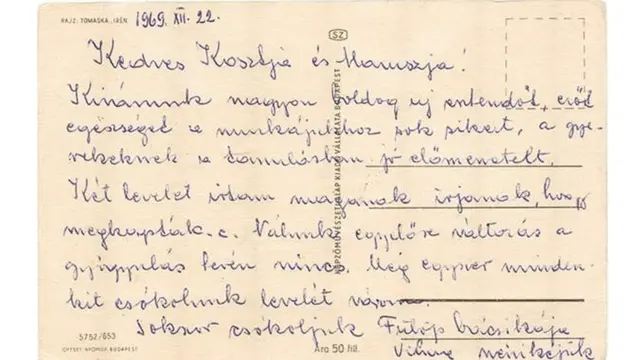 RAJZ: TOMASKA IRÉN 1969. XII. 22.
SZ
Kedves Kosztjá és Maruszja!
Kivánunk nagyon boldog uj esztendőt, erőt
egészséget a munkájukhoz sok sikert, a gye-
rekeknek a tanulásban jó előmenetelt.
Két levelet irtam maguknak irjanak, hogy
megkapták-e. Nálunk egyelőre változás a
gyógyulás terén nincs. Még egyszer minden-
kit csókolunk levelét várom.
Sokszor csókoljuk Fülöp bácsikája
Vilma nénikéjük
KÉPZŐMŰVÉSZETI ALAP KIADÓVÁLLALATA BUDAPEST
5752/653
OFFSET NYOMDA BUDAPEST
Ára 50 fill.